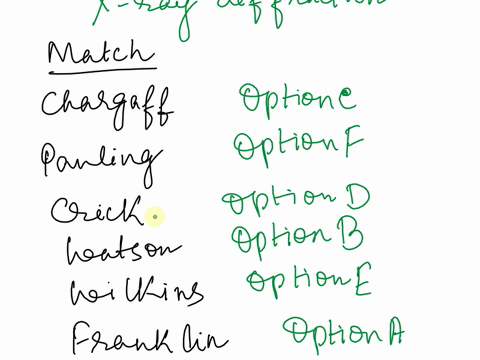 X-ray deffraction
Match
Chargaff Option C
Pauling Option F
Crick Option D
Watson Option B
Wilkins Option E
Franklin Option A